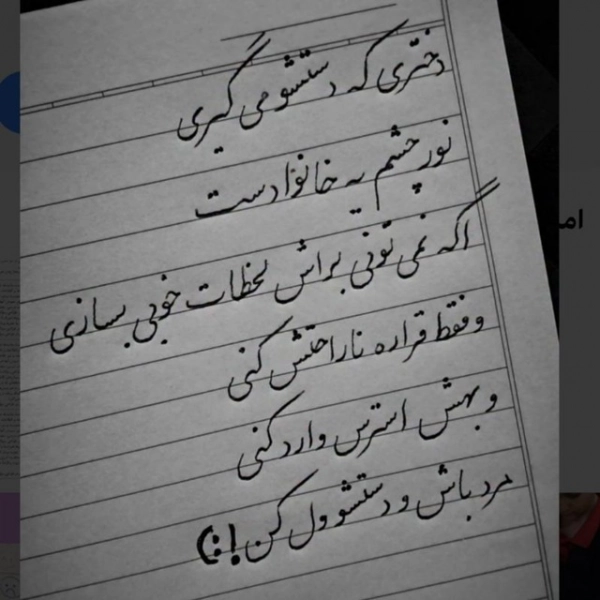 دختری که دستشو می گیری
نور چشم یه خانوادست
اگه نمی تونی براش لحظات خوبی بسازی
و فقط قراره ناراحتش کنی
و بهش استرس وارد کنی
مرد باش و دستشو ول کن!:)